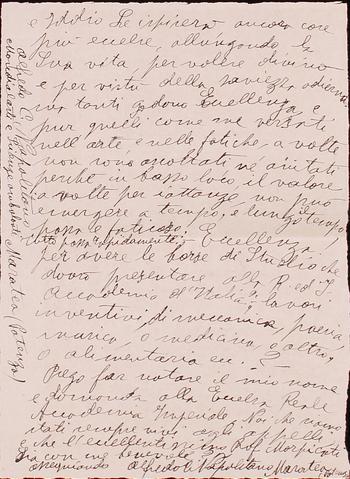 e Iddio Le ispirerà ancora cose
più eccelse, allungando la
Sua vita per volere divino
e per virtù della saviezza odierna.
ma tanti godono Eccellenza e
pur quelli come me versati
nell'arte, e nelle fatiche, a volte
non sono ascoltati nè aiutati
perchè in basso loco il valore
a volte per iattanza, non può
emergere a tempo, e lungo tempo
passa le faticose! E Eccellenza
rapidamente
per avere le borse di Studio che
dovrò presentare alla R. ed I.
Accademia d'Italia, lavori
inventivi, di meccanica, poesia,
musica, o medicina, e altro,
o alimentaria ecc. ?
Prego far notare il mio nome
e domanda alla Eccelsa Reale
Accademia Imperiale
stati sempre vivi
che l'Eccellentissimo Prof. Morpicati
sia con me benevole
Alfredo C. Napolitano Maratea
Alfredo C. Napolitano
Maratea (Potenza)